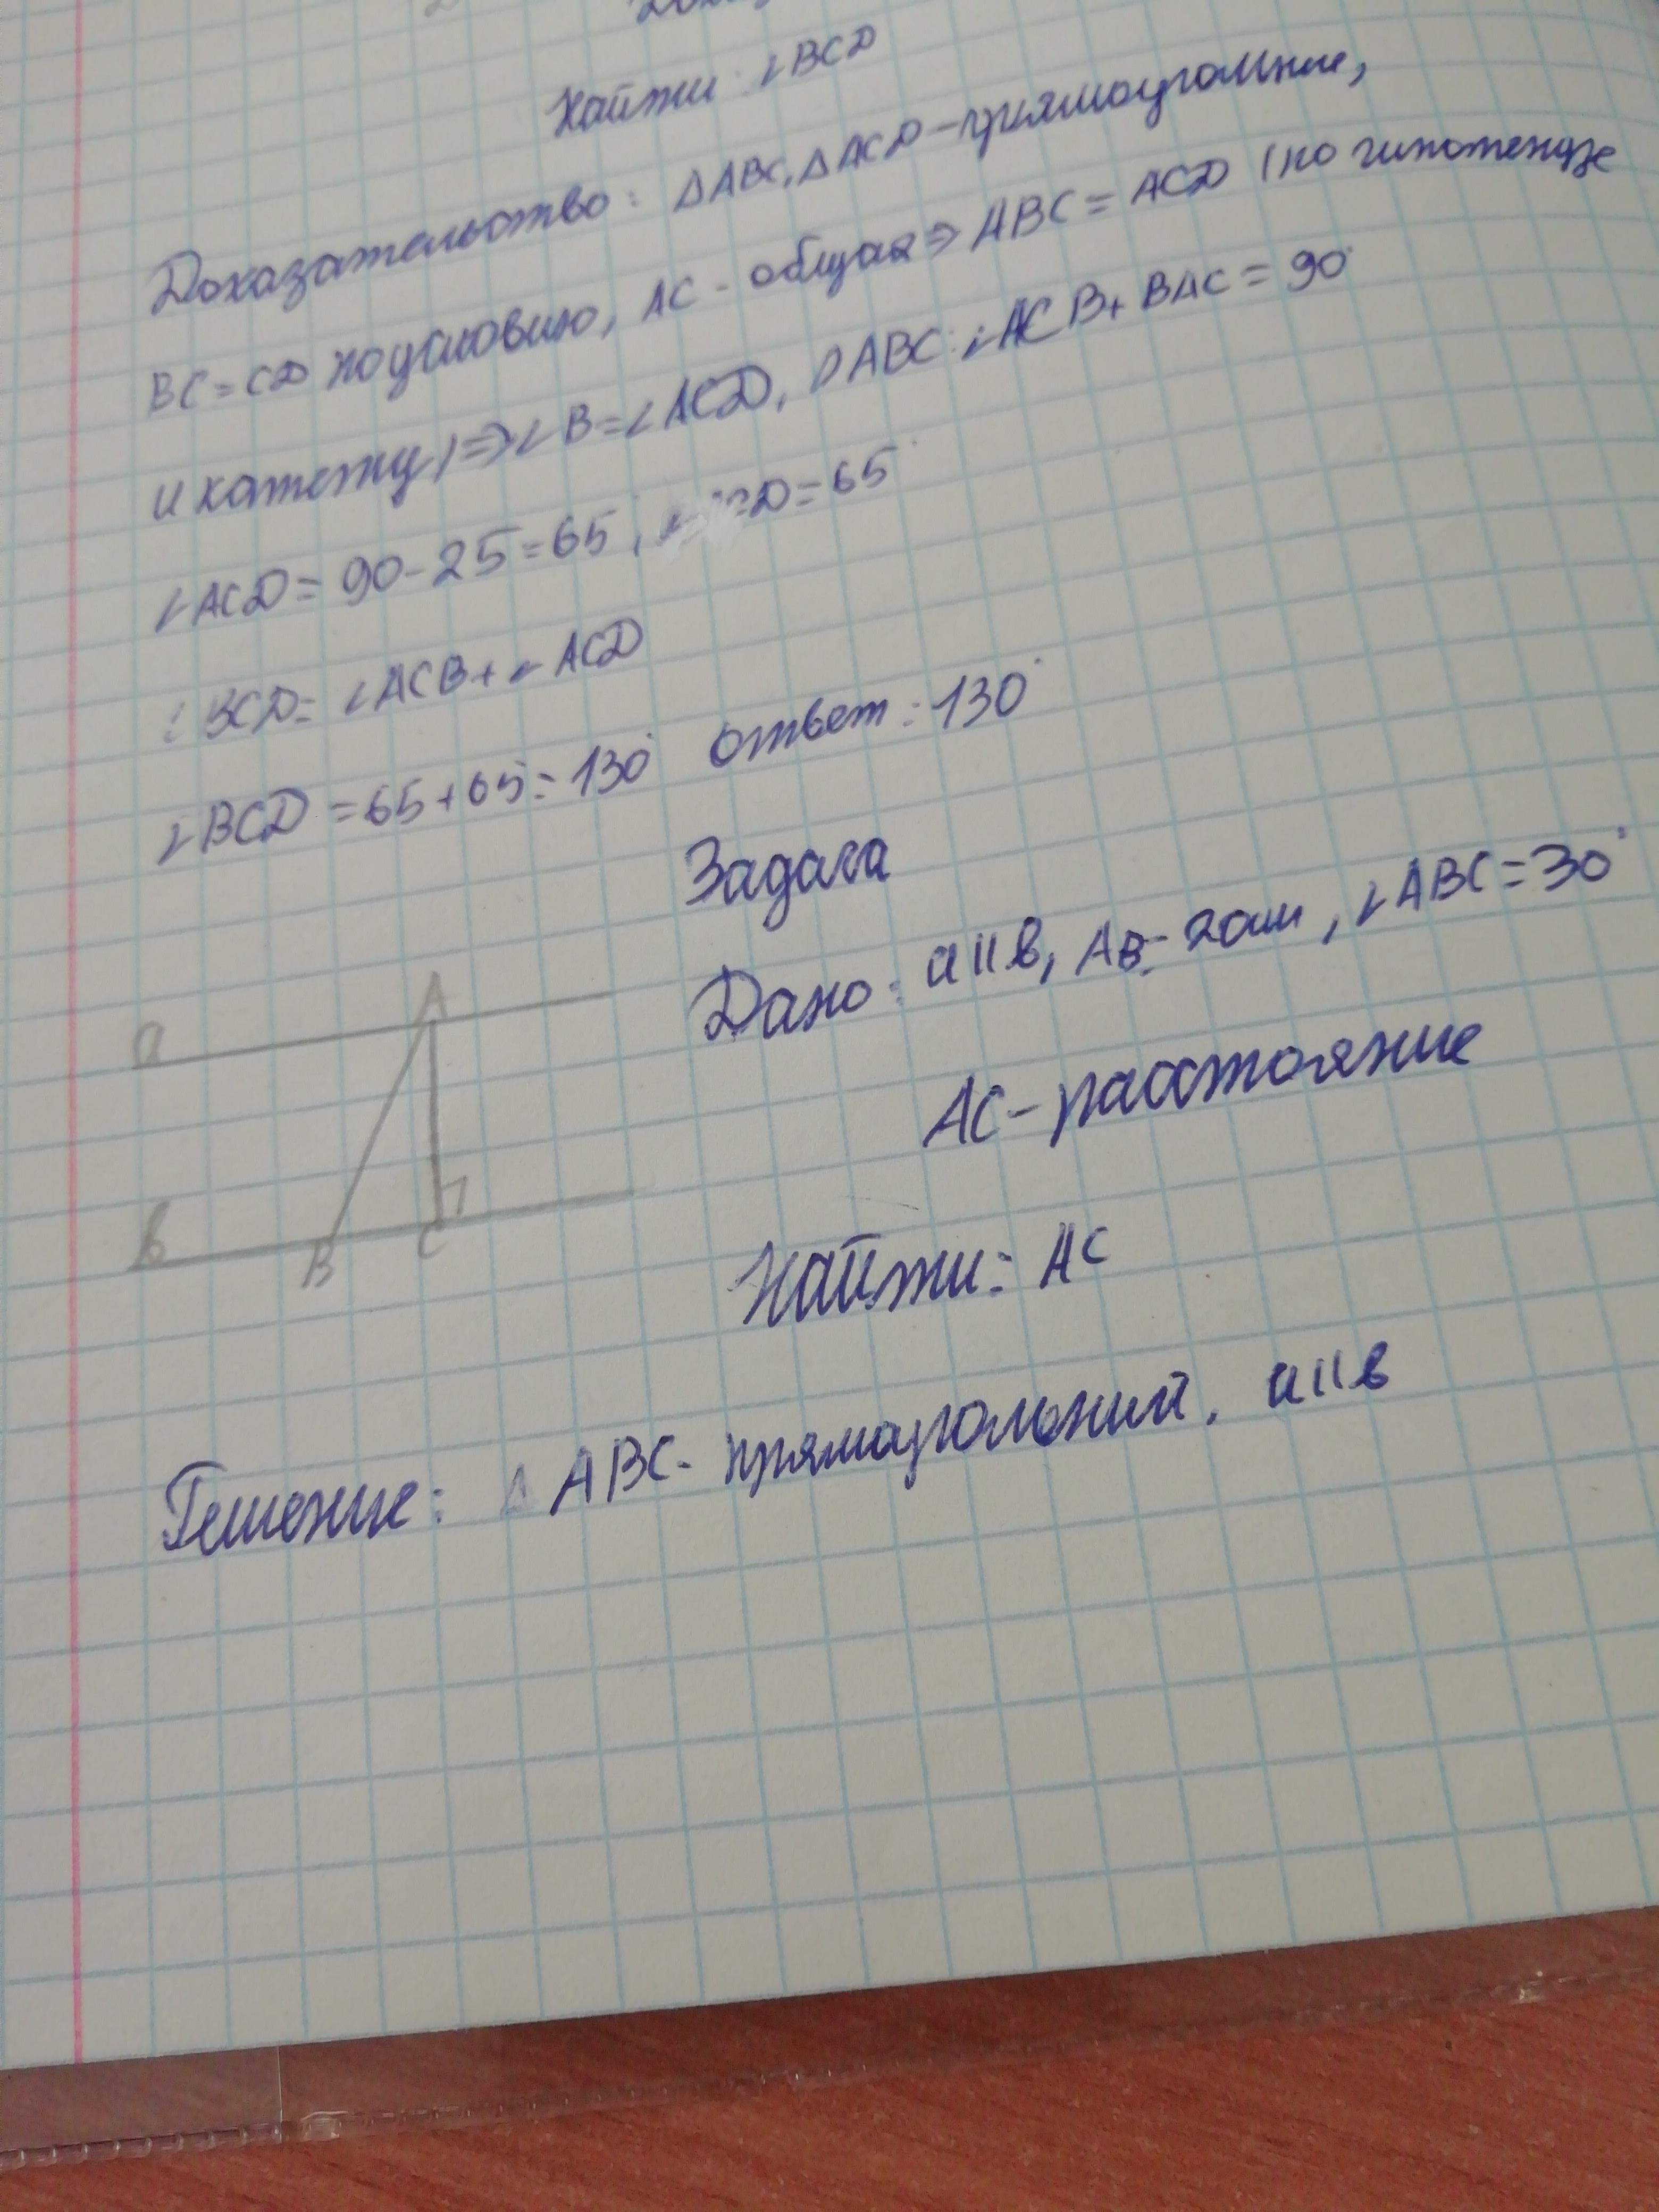 Найти: ∠BCD
Доказательство: ΔABC, ΔACD - прямоугольные,
BC = CD по условию, AC - общая ⇒ ABC = ACD (по гипотенузе
и катету) ⇒ ∠B = ∠ACD, ΔABC: ∠ACB + BAC = 90°
∠ACD = 90 - 25 = 65, CD = 65°
∠BCD = ∠ACB + ∠ACD
∠BCD = 65 + 65 = 130° Ответ: 130°
Задача
Дано: a || b, AB - 20см, ∠ABC = 30°
AC - расстояние
Найти: AC
a
A
b
B
C
Решение: Δ ABC - прямоугольний, a || b